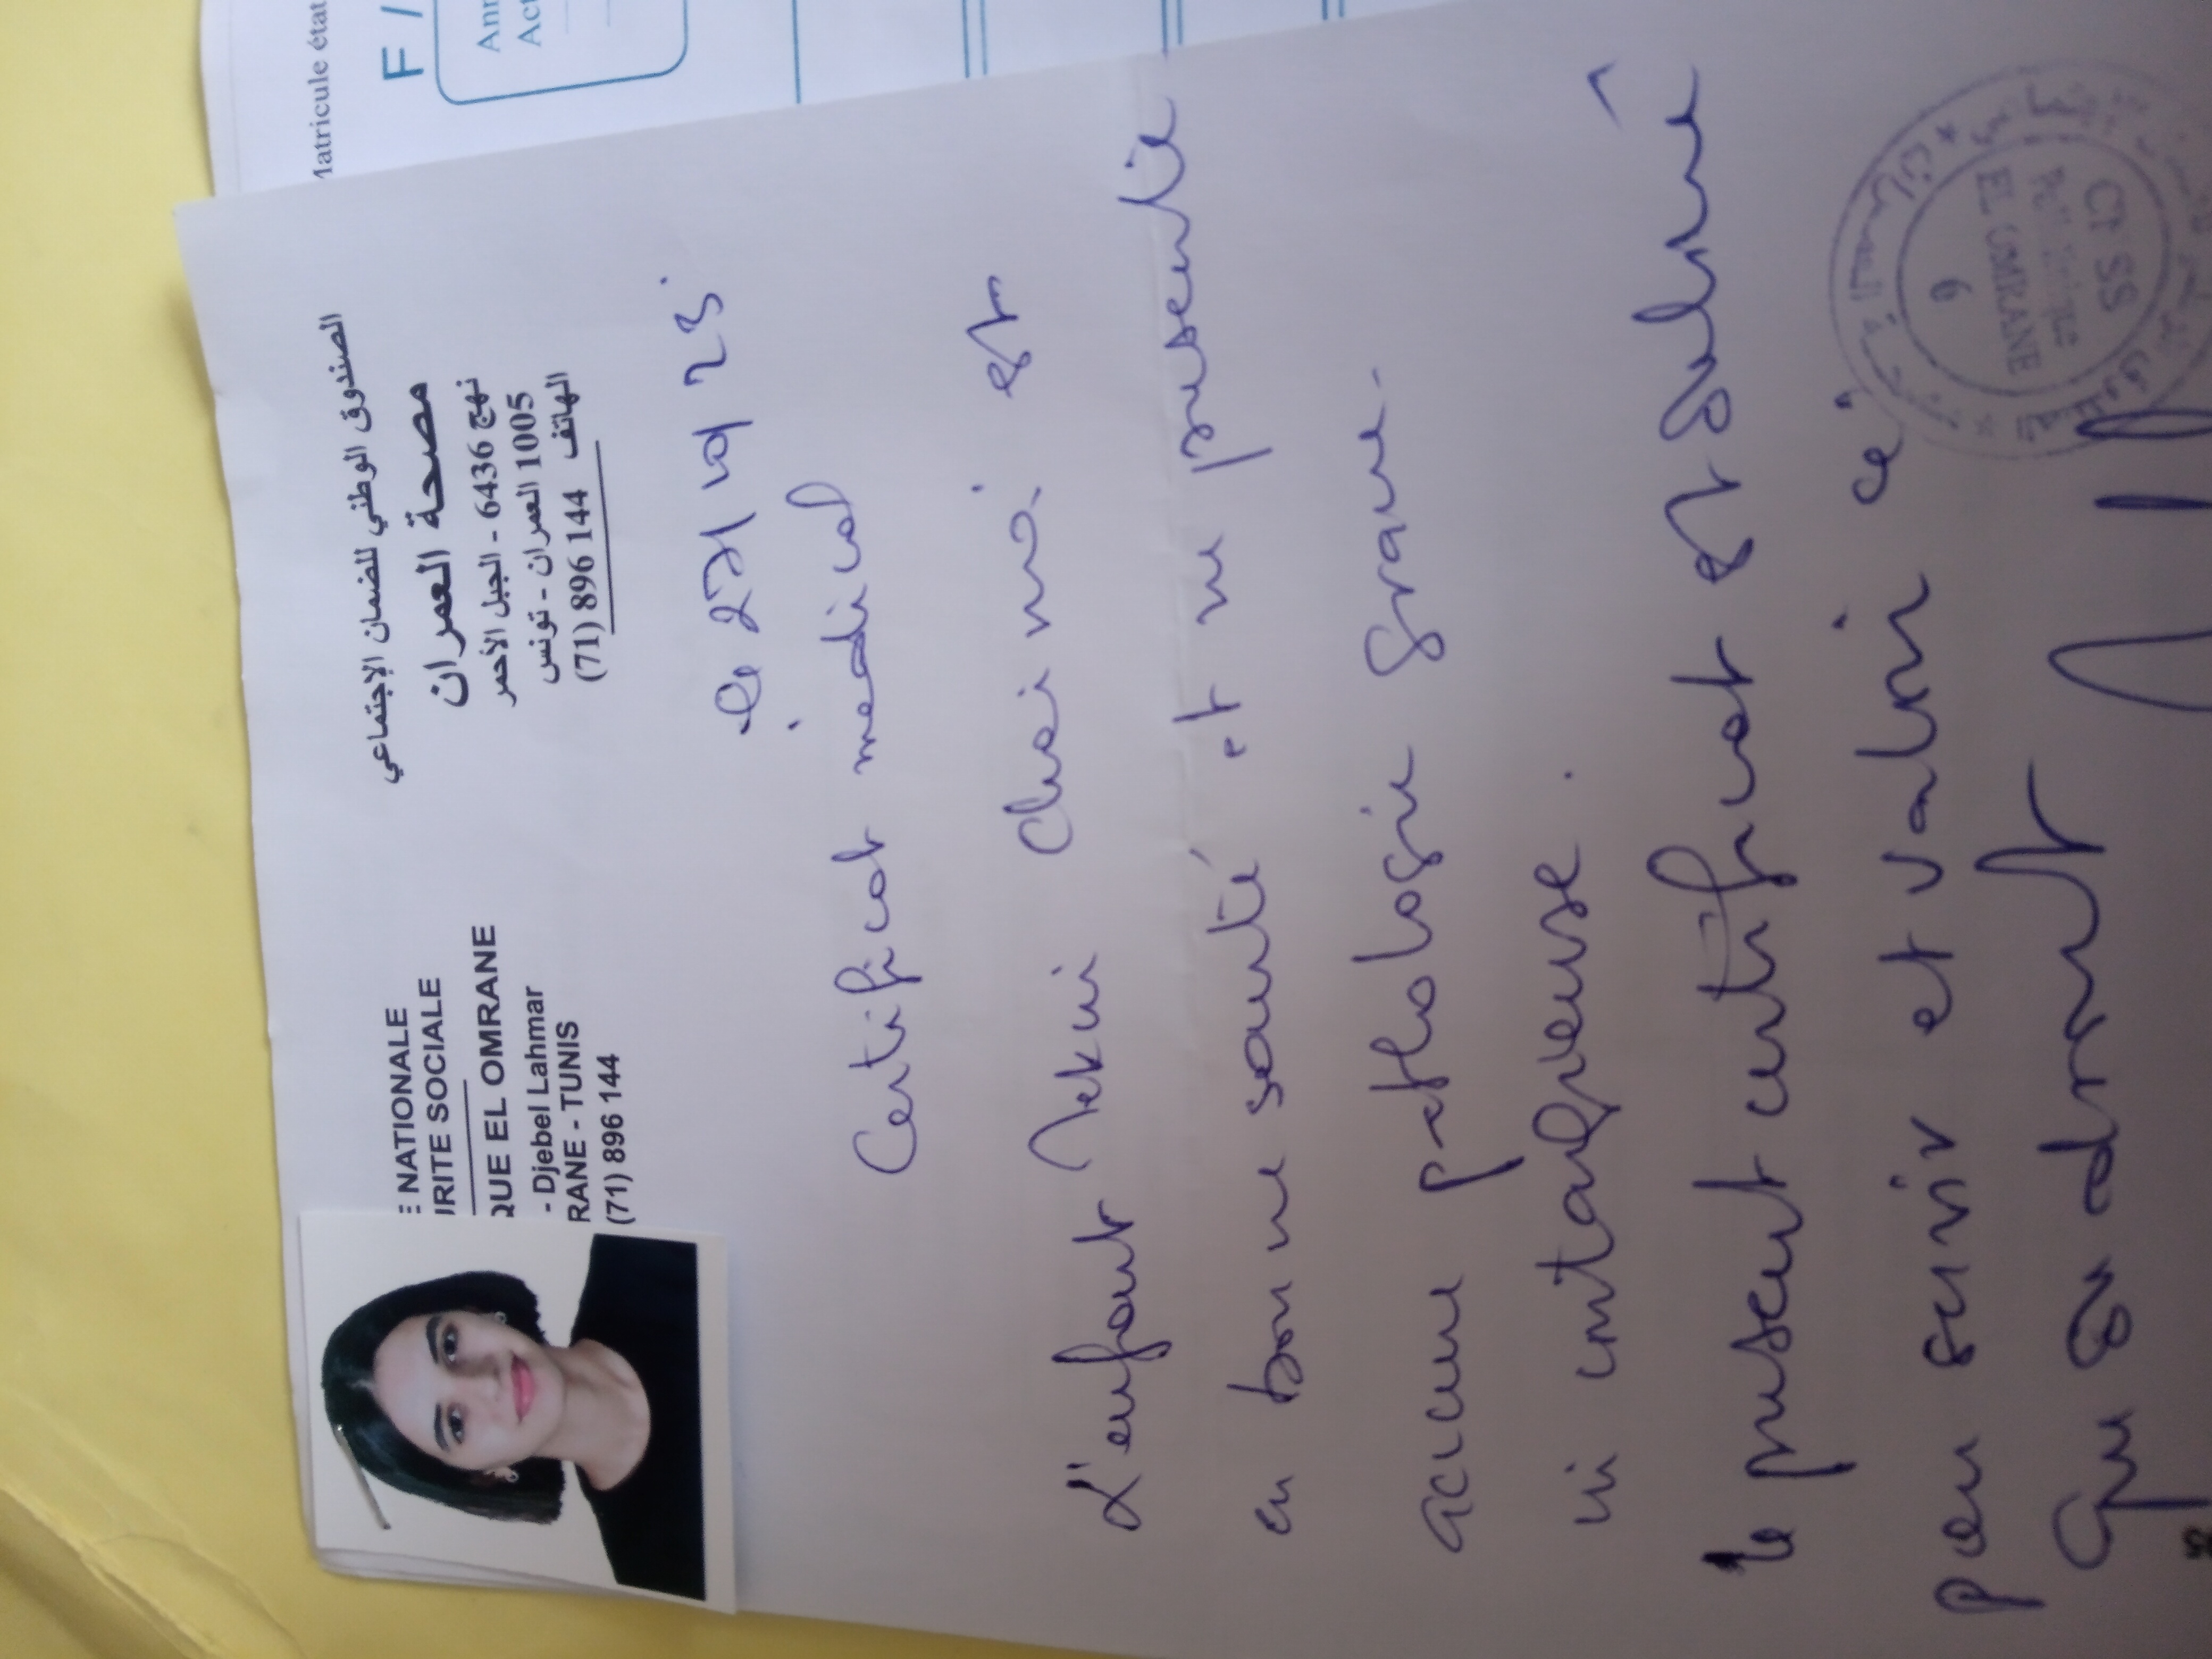 Matricule état
F /
Ann
Act
E NATIONALE
URITE SOCIALE
QUE EL OMRANE
- Djebel Lahmar
RANE - TUNIS
(71) 896 144
الصندوق الوطني للضمان الإجتماعي
مصحة العمران
نهج 6436 - الجبل الأحمر
1005 العمران - تونس
الهاتف 896 144 (71)
le 27/10/23
Certificat médical
L'enfant Mekni Chaima est
en bonne santé et ne présente
aucune pathologie grave
ni contagieuse.
le présent certificat est délivré
pour servir et valoir ce
que de droit
CNSS
Polyclinique
EL OMRANE